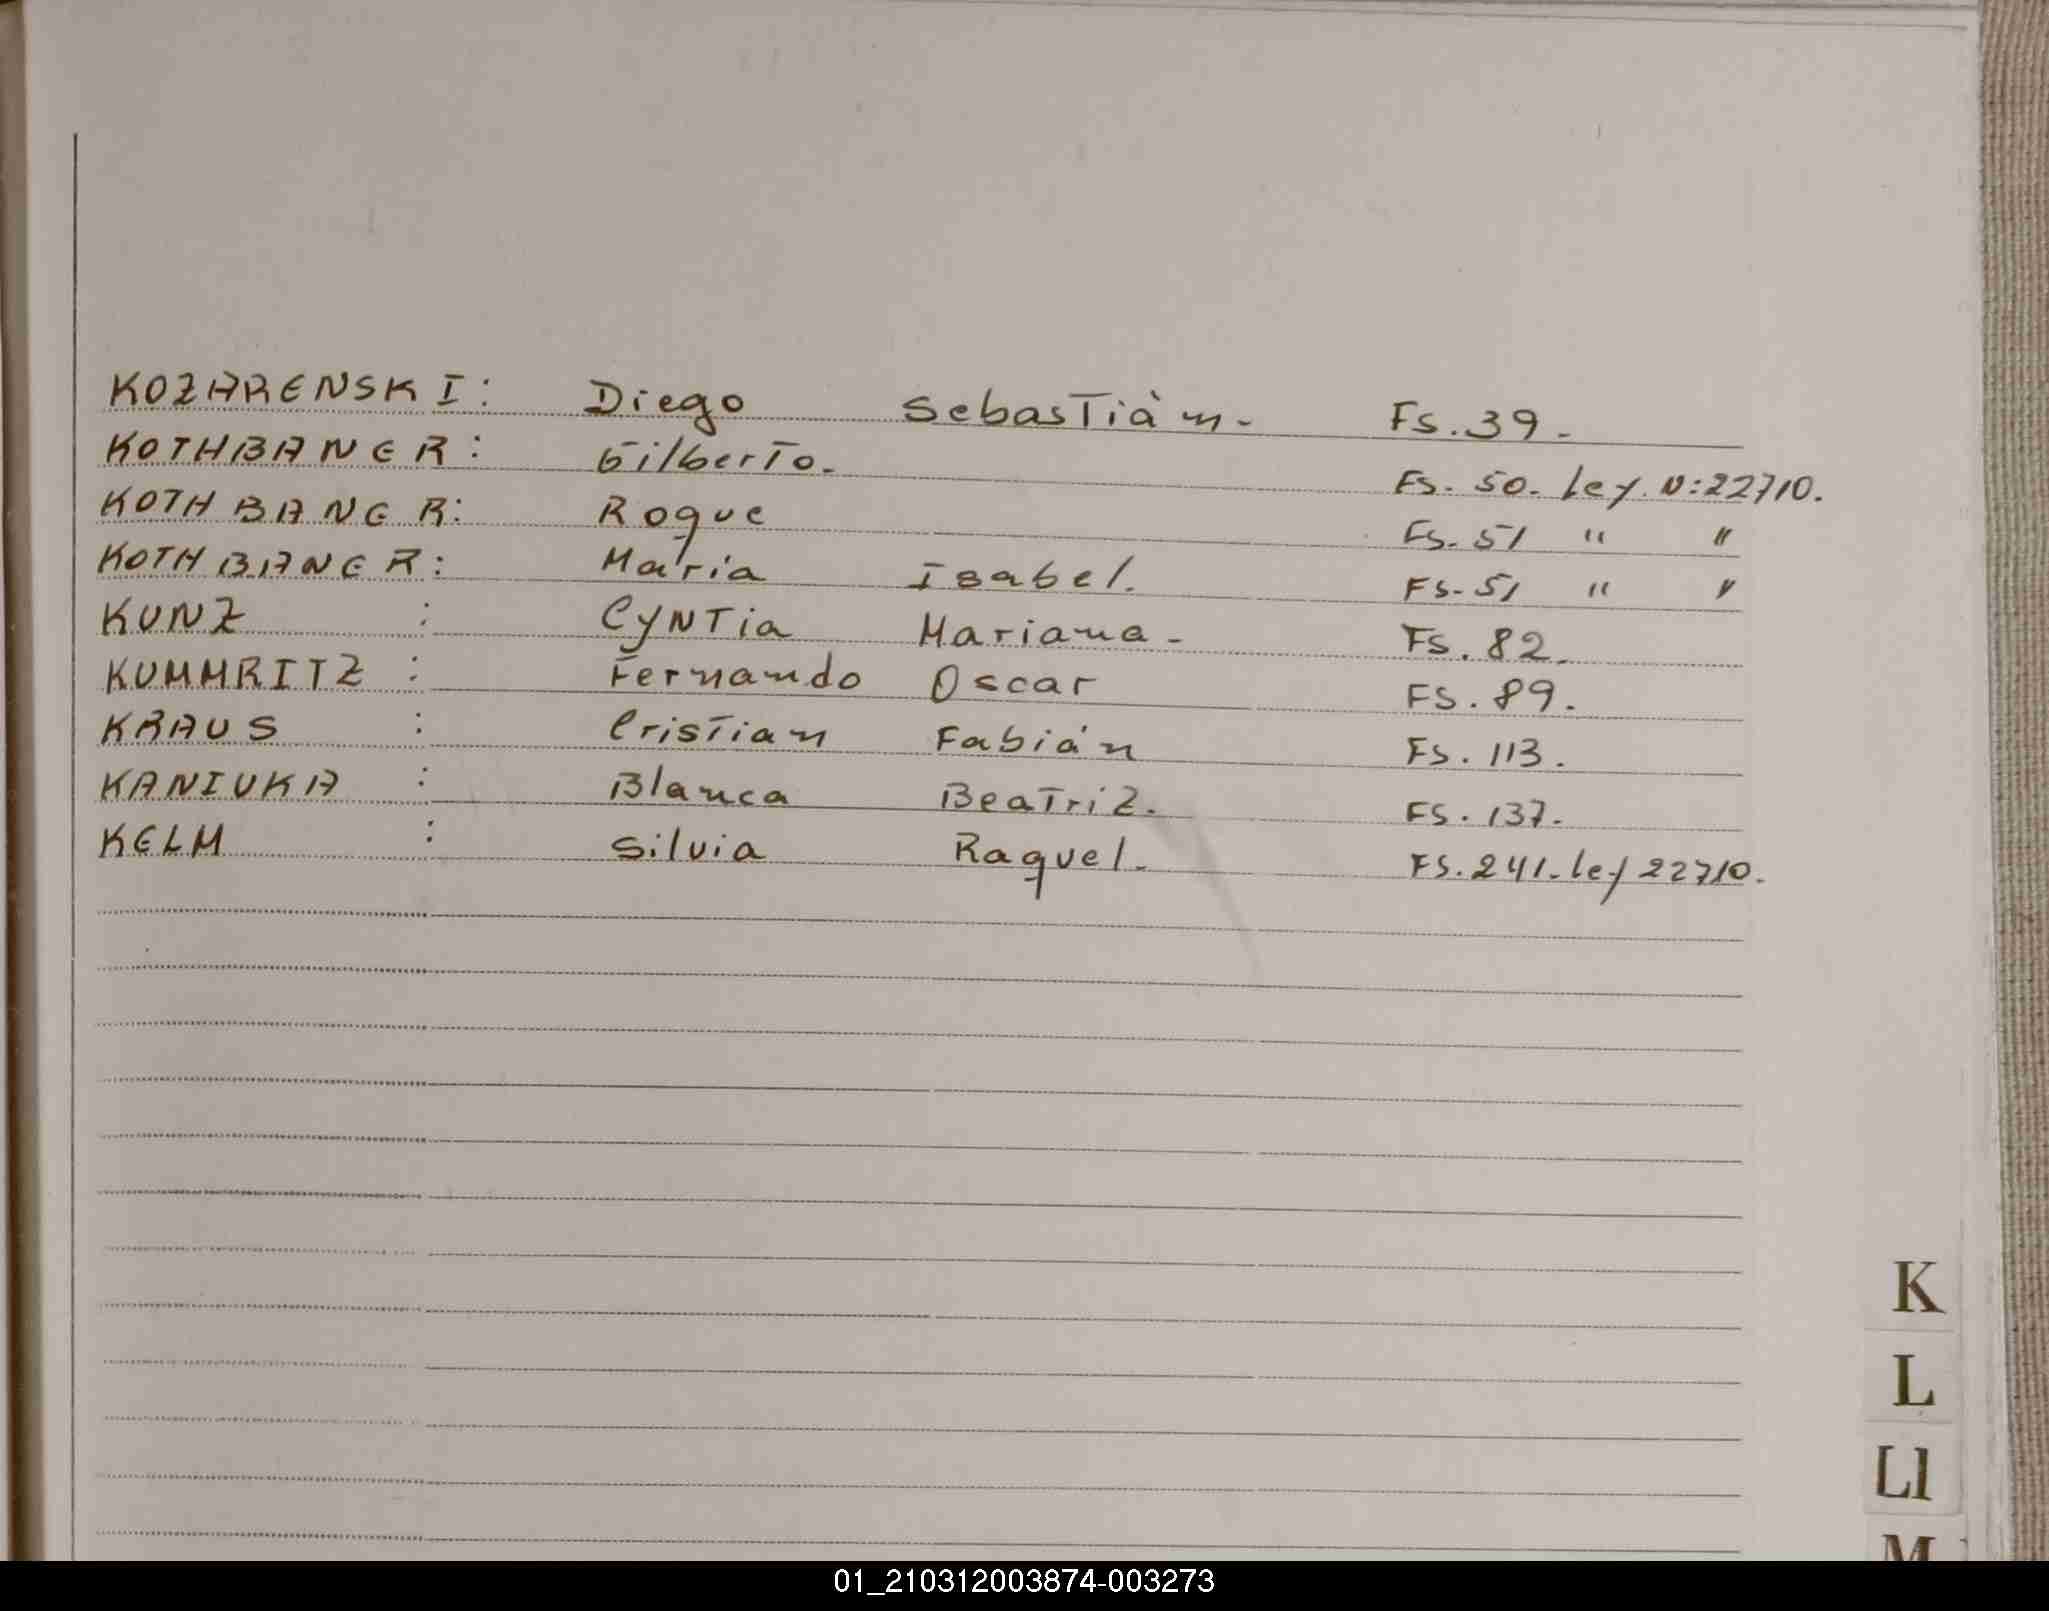 KOZARENSKI: Diego Sebastiàn. Fs. 39.
KOTHBANER: Gilberto. Fs. 50. Ley. N:22710.
KOTHBANER: Roque Fs. 51 " "
KOTHBANER: María Isabel. Fs. 51 " "
KUNZ : Cyntia Mariana. Fs. 82.
KUMMRITZ : Fernando Oscar FS. 89.
KRAUS : Cristian Fabián Fs. 113.
KANIUKA : Blanca Beatriz. FS. 137.
KELM : Silvia Raquel. FS. 241. Ley 22710.
K
L
Ll
M
01_210312003874-003273